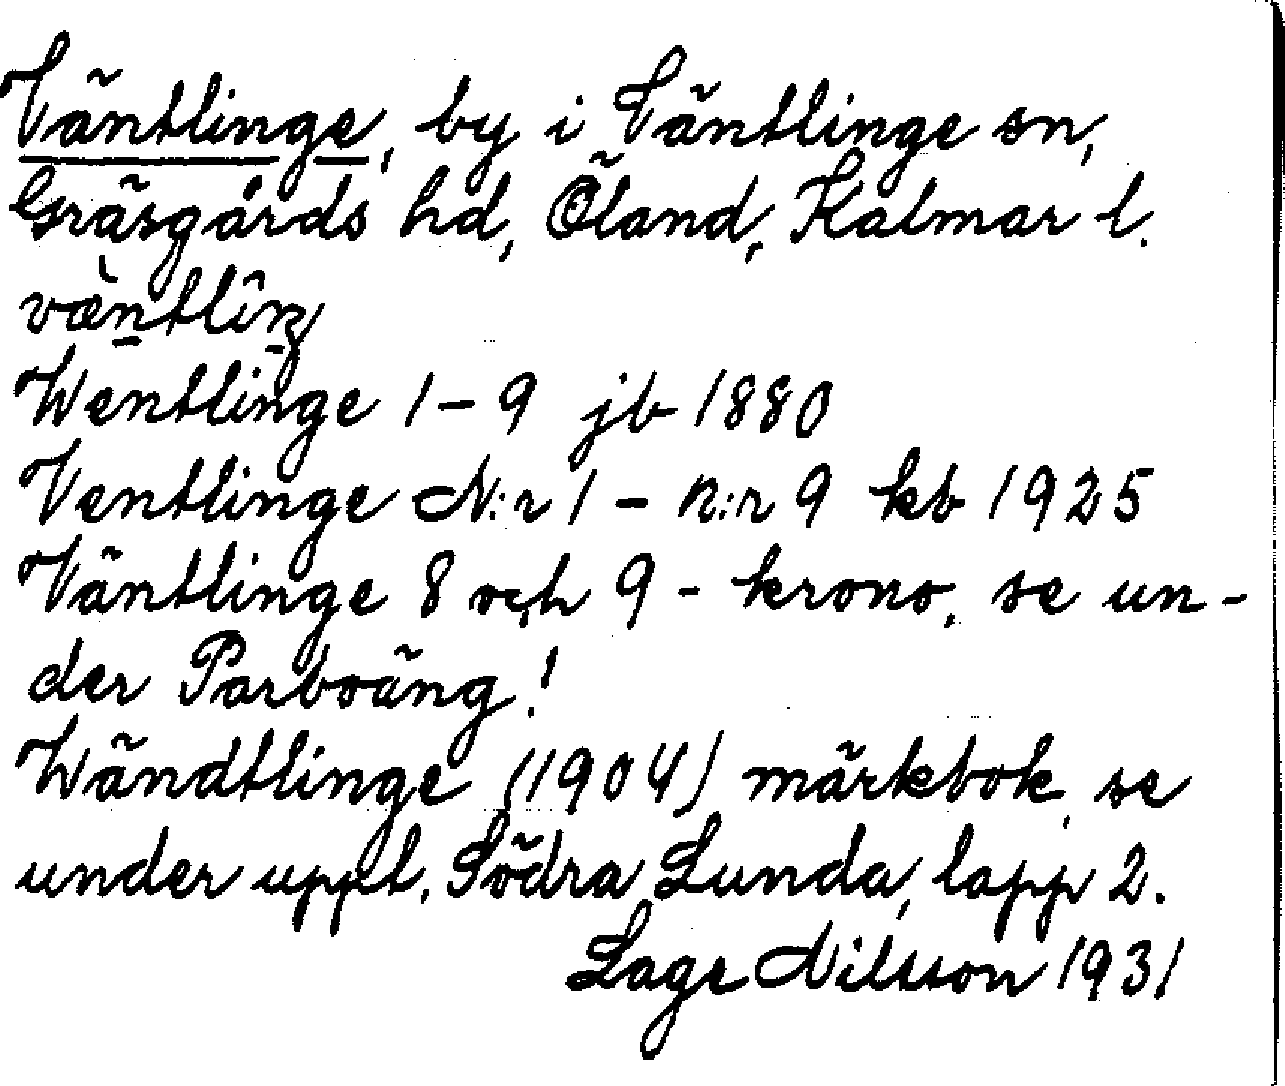 Väntlinge, by i Väntlinge sn,
Gräsgårds hd, Öland, Kalmar l.
væ̀ntlîŋ
Wentlinge 1-9 jb 1880
Ventlinge N:r 1 - n:r 9 kb 1925
Väntlinge 8 och 9 - krono, se un-
der Parboäng!
Wändtlinge (1904) märkbok, se
under uppt. Södra Lunda, lapp 2.
Lage Nilsson 1931